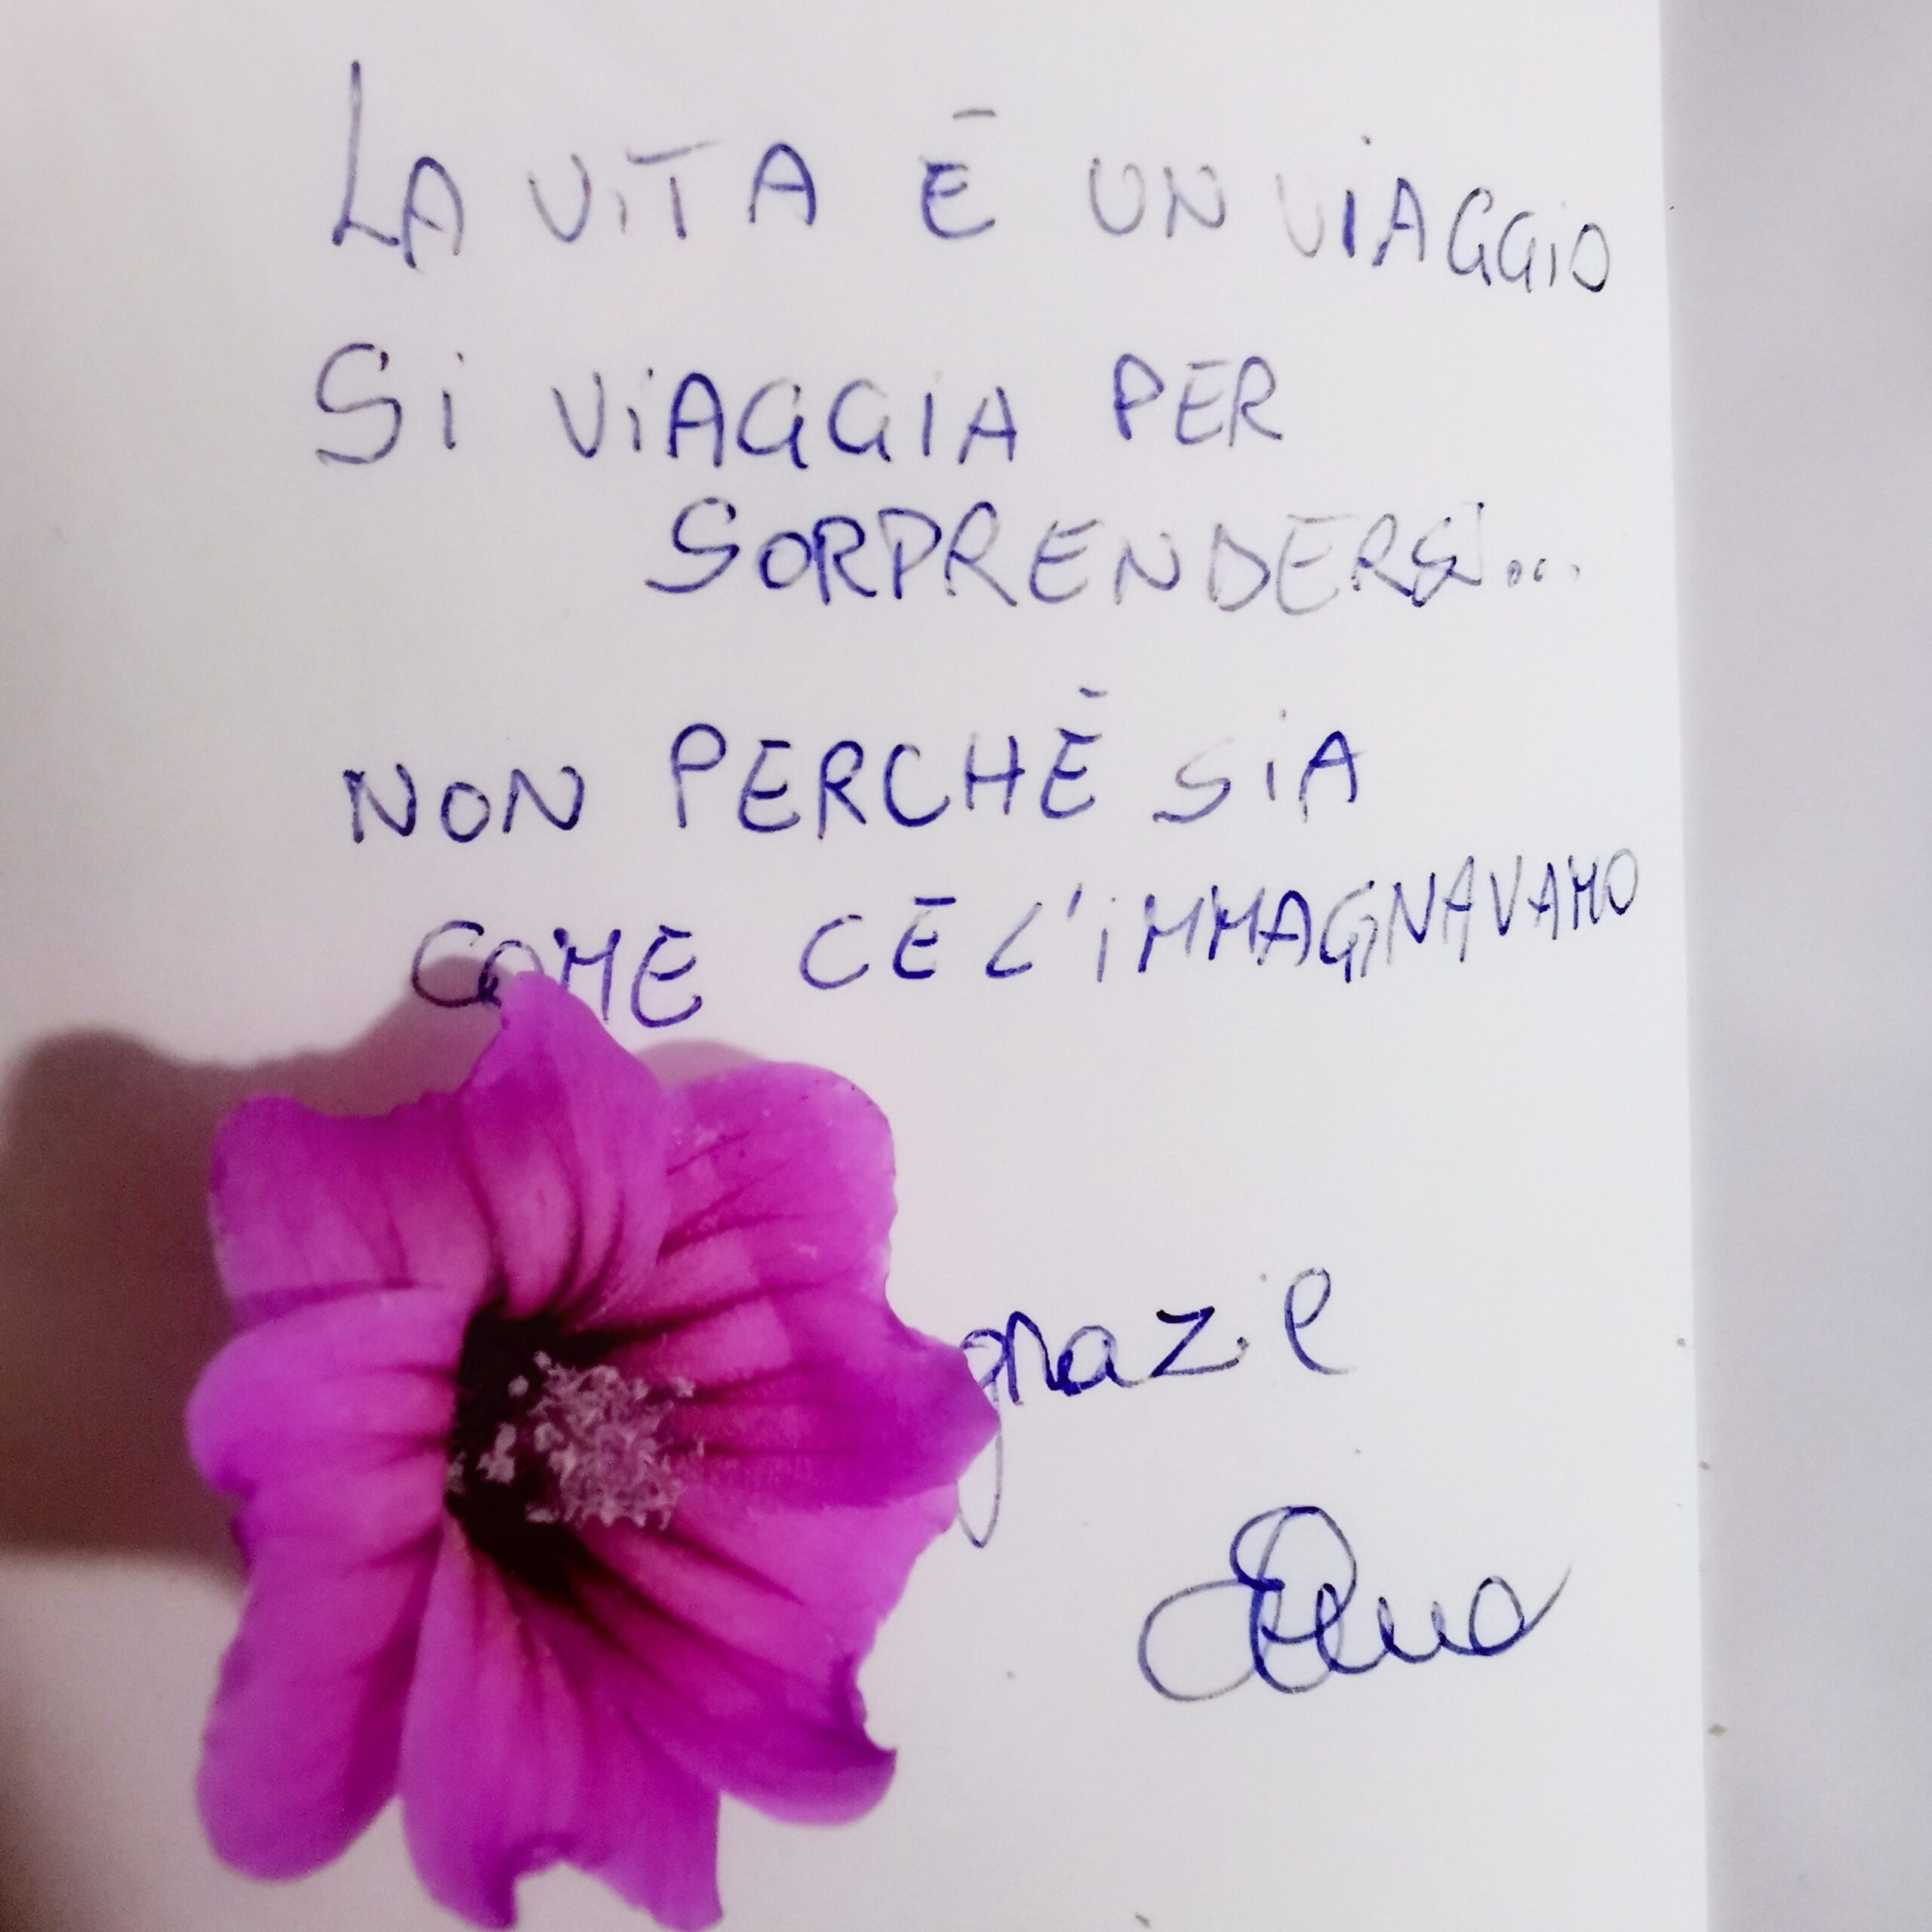 LA VITA È UN VIAGGIO
SI VIAGGIA PER
SORPRENDERSI...
NON PERCHÈ SIA
COME CE L'IMMAGINAVAMO
grazie
Elena